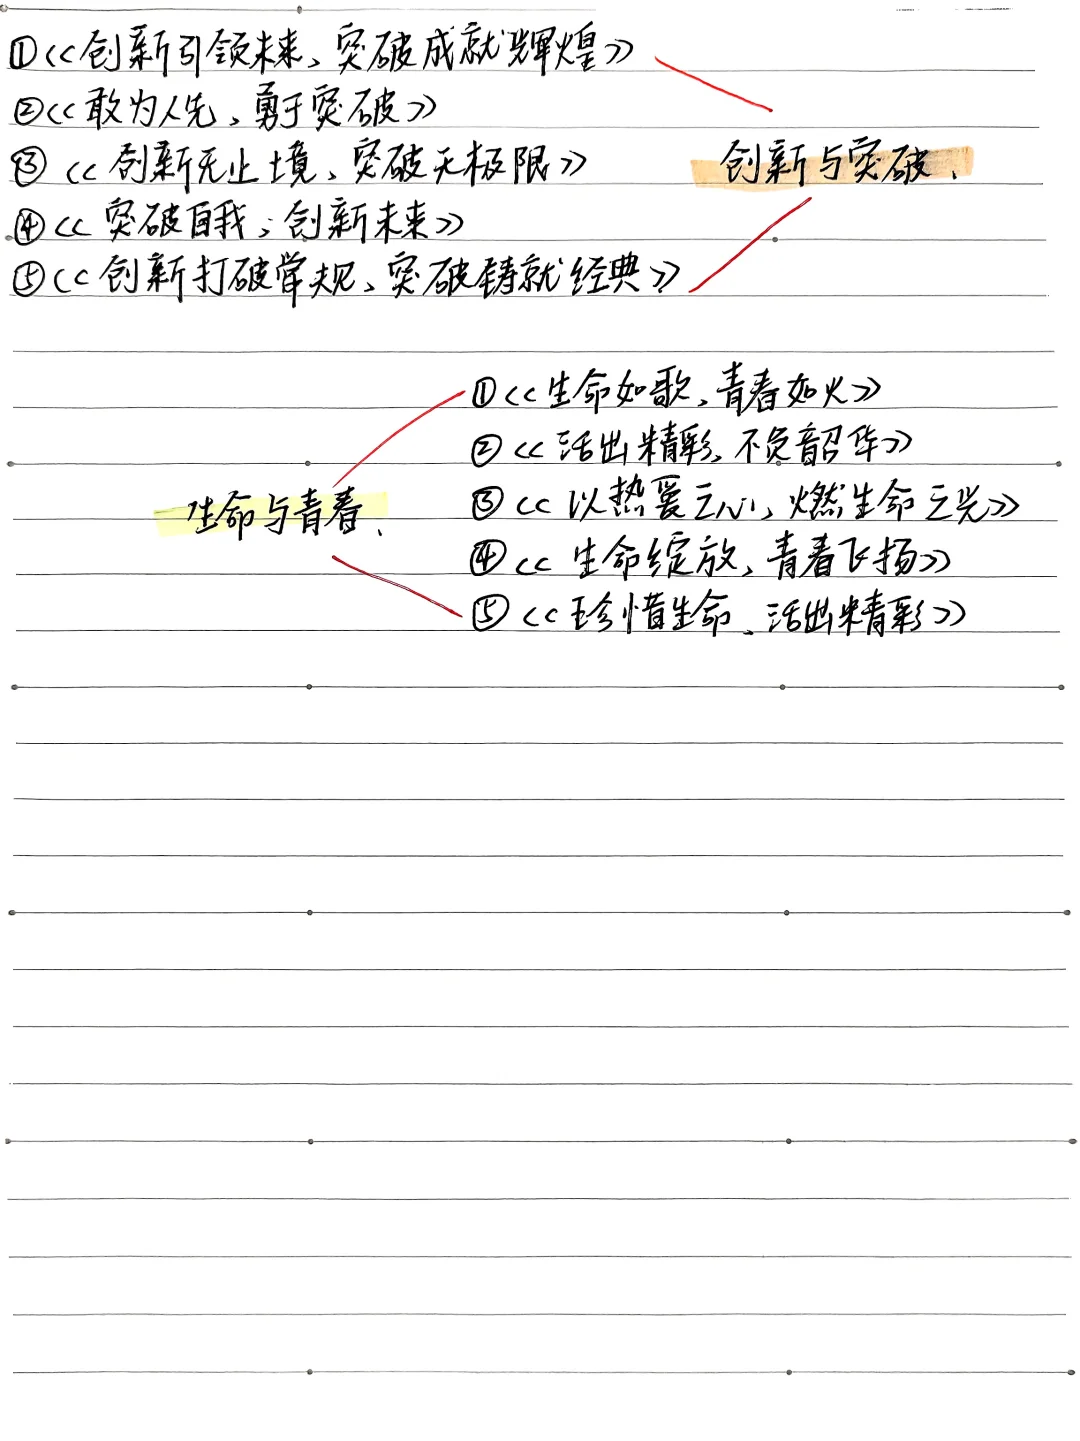 ①《创新引领未来、突破成就辉煌》
②《敢为人先、勇于突破》
③《创新无止境、突破无极限》
创新与突破、
④《突破自我；创新未来》
⑤《创新打破常规、突破铸就经典》
①《生命如歌、青春如火》
②《活出精彩、不负韶华》
生命与青春、
③《以热爱之心、燃生命之光》
④《生命绽放、青春飞扬》
⑤《珍惜生命、活出精彩》